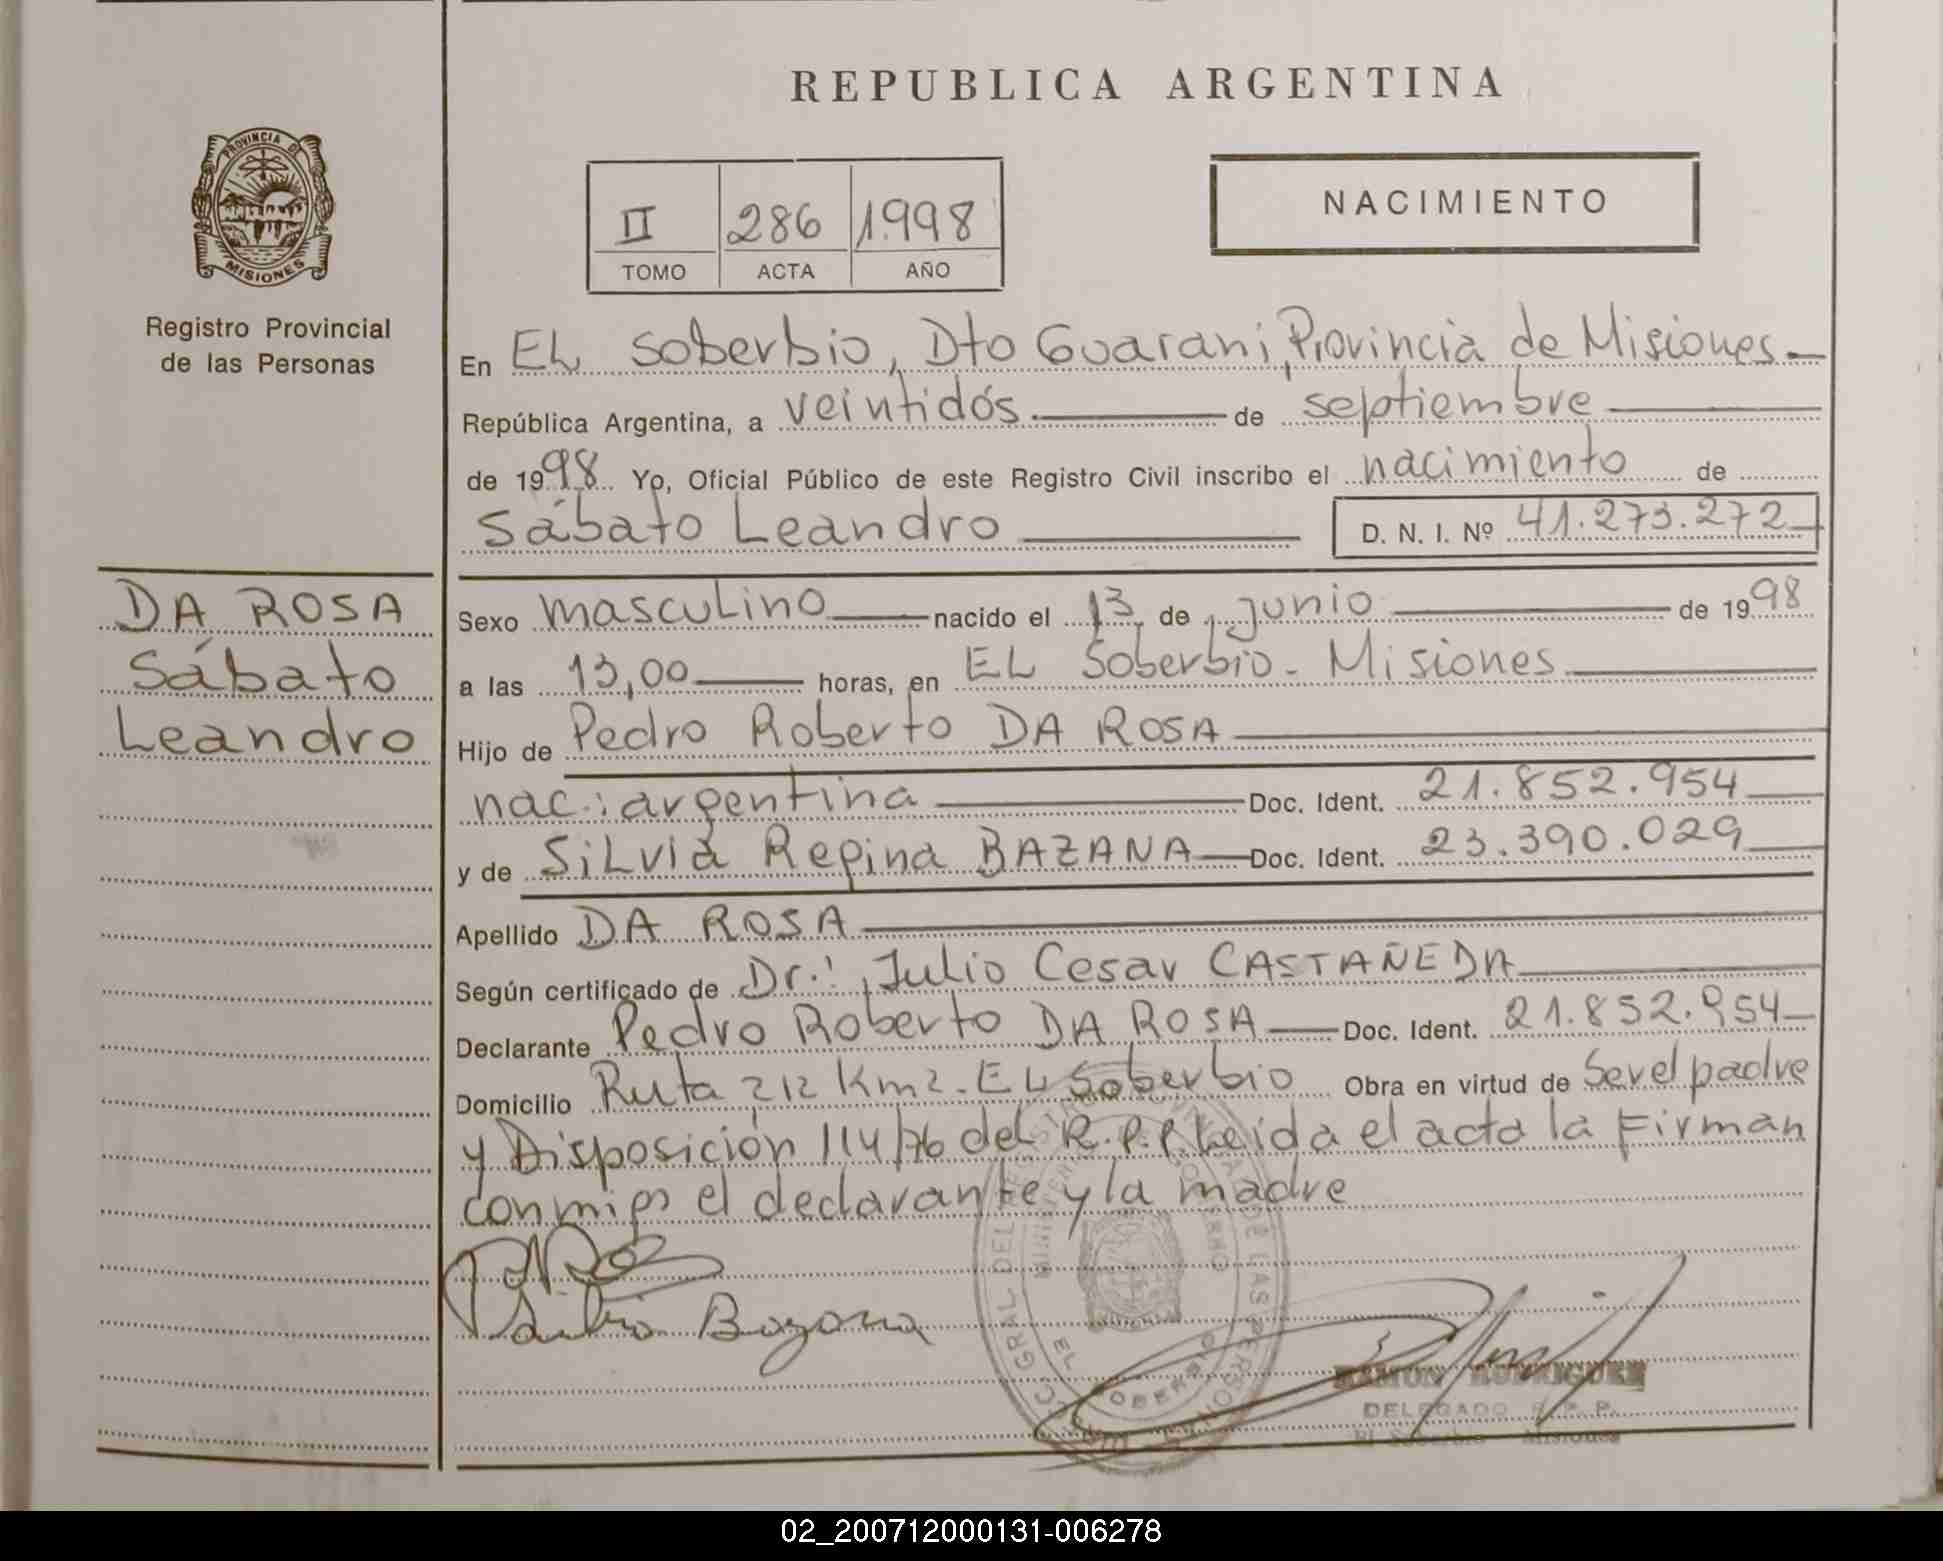 REPUBLICA ARGENTINA
PROVINCIA DE
MISIONES
Registro Provincial
de las Personas
II 286 1.998
TOMO ACTA AÑO
NACIMIENTO
En EL Soberbio, Dto Guarani, Provincia de Misiones
República Argentina, a veintidós de septiembre
de 1998 Yo, Oficial Público de este Registro Civil inscribo el nacimiento de
Sábato Leandro D. N. I. Nº 41.273.272
DA ROSA
Sábato
Leandro
Sexo masculino nacido el 13 de junio de 1998
a las 13,00 horas, en EL Soberbio - Misiones
Hijo de Pedro Roberto DA ROSA
nac: argentina Doc. Ident. 21.852.954
y de Silvia Regina BAZANA Doc. Ident. 23.390.029
Apellido DA ROSA
Según certificado de Dr.: Julio Cesar CASTAÑEDA
Declarante Pedro Roberto DA ROSA Doc. Ident. 21.852.954
Domicilio Ruta 212 Km 2 - EL Soberbio Obra en virtud de Ser el padre
y Disposición 114/76 del R.P.P. Leída el acta la Firman
conmigo el declarante y la madre
Silvia Bazana
RAMON RODRIGUEZ
DELEGADO R. P. P.
El Soberbio Misiones
02_200712000131-006278